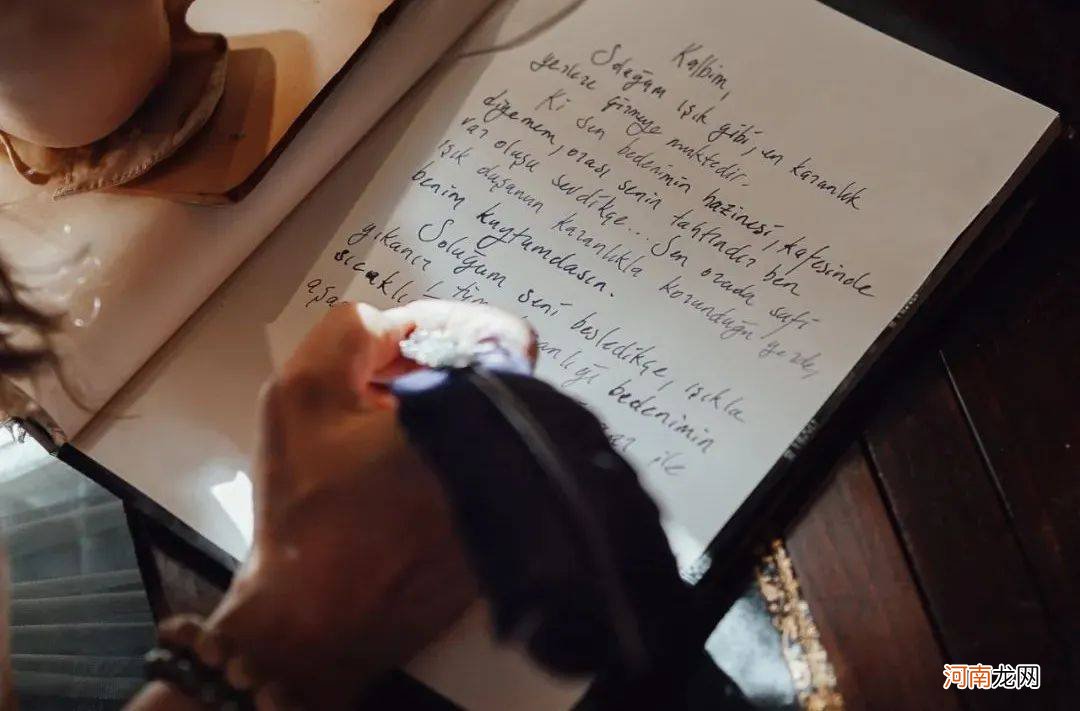 Kalbim,
Soluğum ışık gibi, en karanlık
yerlere girmeye muktedir.
Ki sen bedenimin hazinesi, kafesinde
diyemem, orası senin tahtındır ben
var oluşu sevdikçe... Sen orada safi
ışık duşunun karanlıkla korunduğu yerde,
benim kuytumdasın.
Soluğum seni besledikçe, ışıkla
yıkanır tüm bedenimin
ile
河南龙网